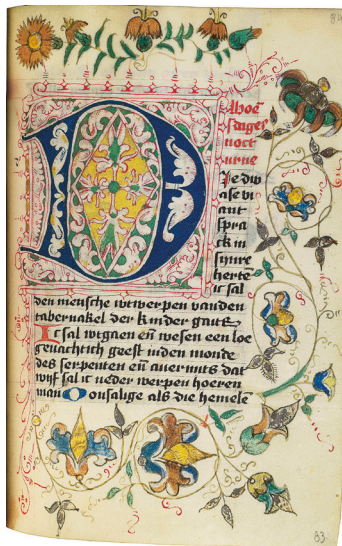 Woē
sdages
noct
urne
DIe dw
ase vi
ant
spra
ck in
synre
herte
ic sal
den mensche wtwerpen vanden
tabernakel der kinder gaits
Ic sal wtgaen en̄ wesen een loe
genachtich geest inden monde
des serpenten en̄ auermits dat
wijf sal ic neder werpen hoeren
man O onsalige als die hemele
83